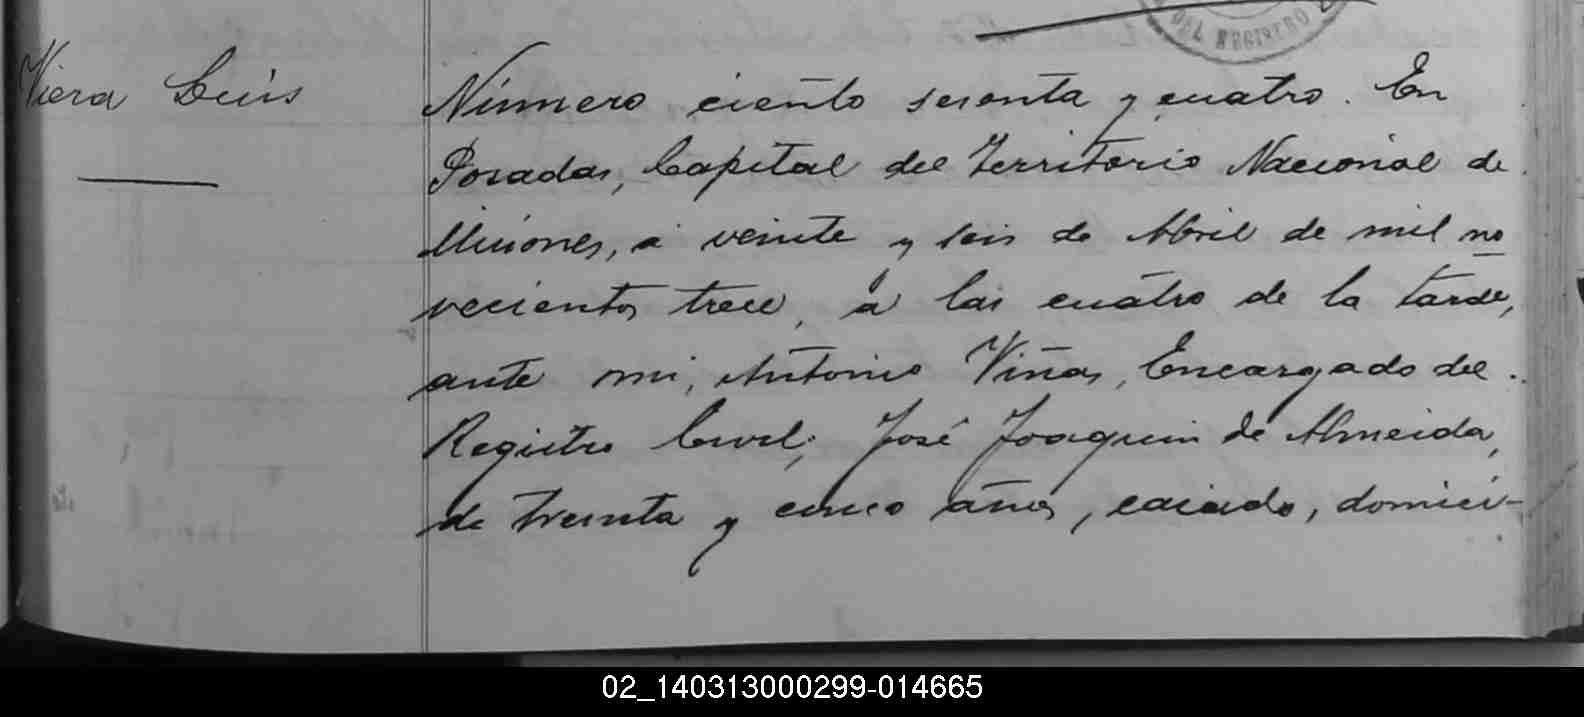 DEL REGISTRO
Viera Luis
Número ciento sesenta y cuatro. En
Posadas, Capital del Territorio Nacional de
Misiones, á veinte y seis de Abril de mil no
vecientos trece, á las cuatro de la tarde,
ante mi, Antonio Viñas, Encargado del
Registro Civil; José Joaquin de Almeida,
de treinta y cinco años, casado, domici-
02_140313000299-014665